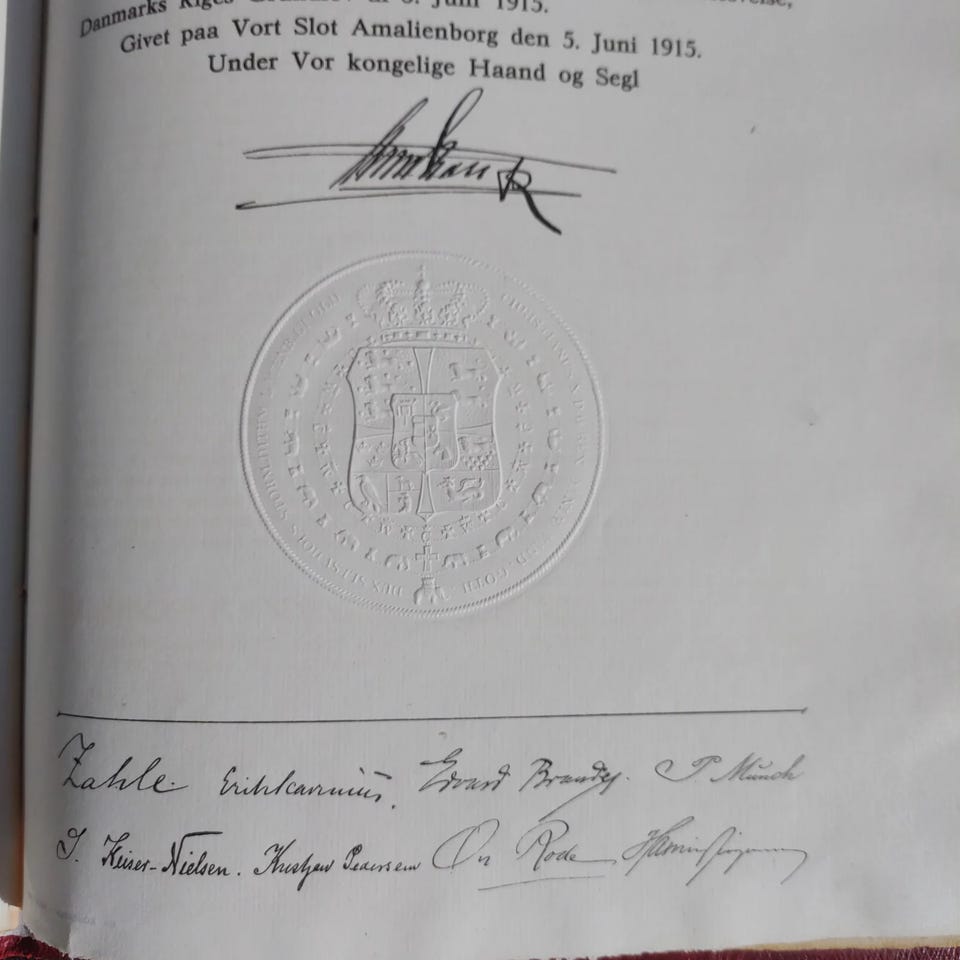 Danmarks Riges Grundlov af 5. Juni 1915.
Givet paa Vort Slot Amalienborg den 5. Juni 1915.
Under Vor kongelige Haand og Segl
Christian R
CHRISTIANUS X D. G. GOTH DUX SLESV HOLS STORM
Zahle. Erik Scavenius. Edvard Brandes. P. Munch
J. Keiser-Nielsen. Kristjan Pedersen Ove Rode